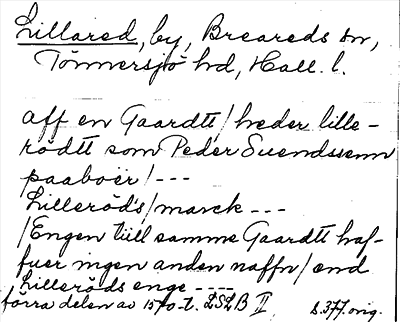 Lillared, by, Breareds sn,
Tönnersjö hd, Hall. l.
aff en Gaardtt/heder lille-
rödtt som Peder Suendssenn
paaboer/---
Lilleröds/marck---
/Engen tiill samme Gaardtt haf-
fuer ingen anden naffn/end
Lilleröds enge----
förra delen av 1570-t. LSLB II s.377.orig.